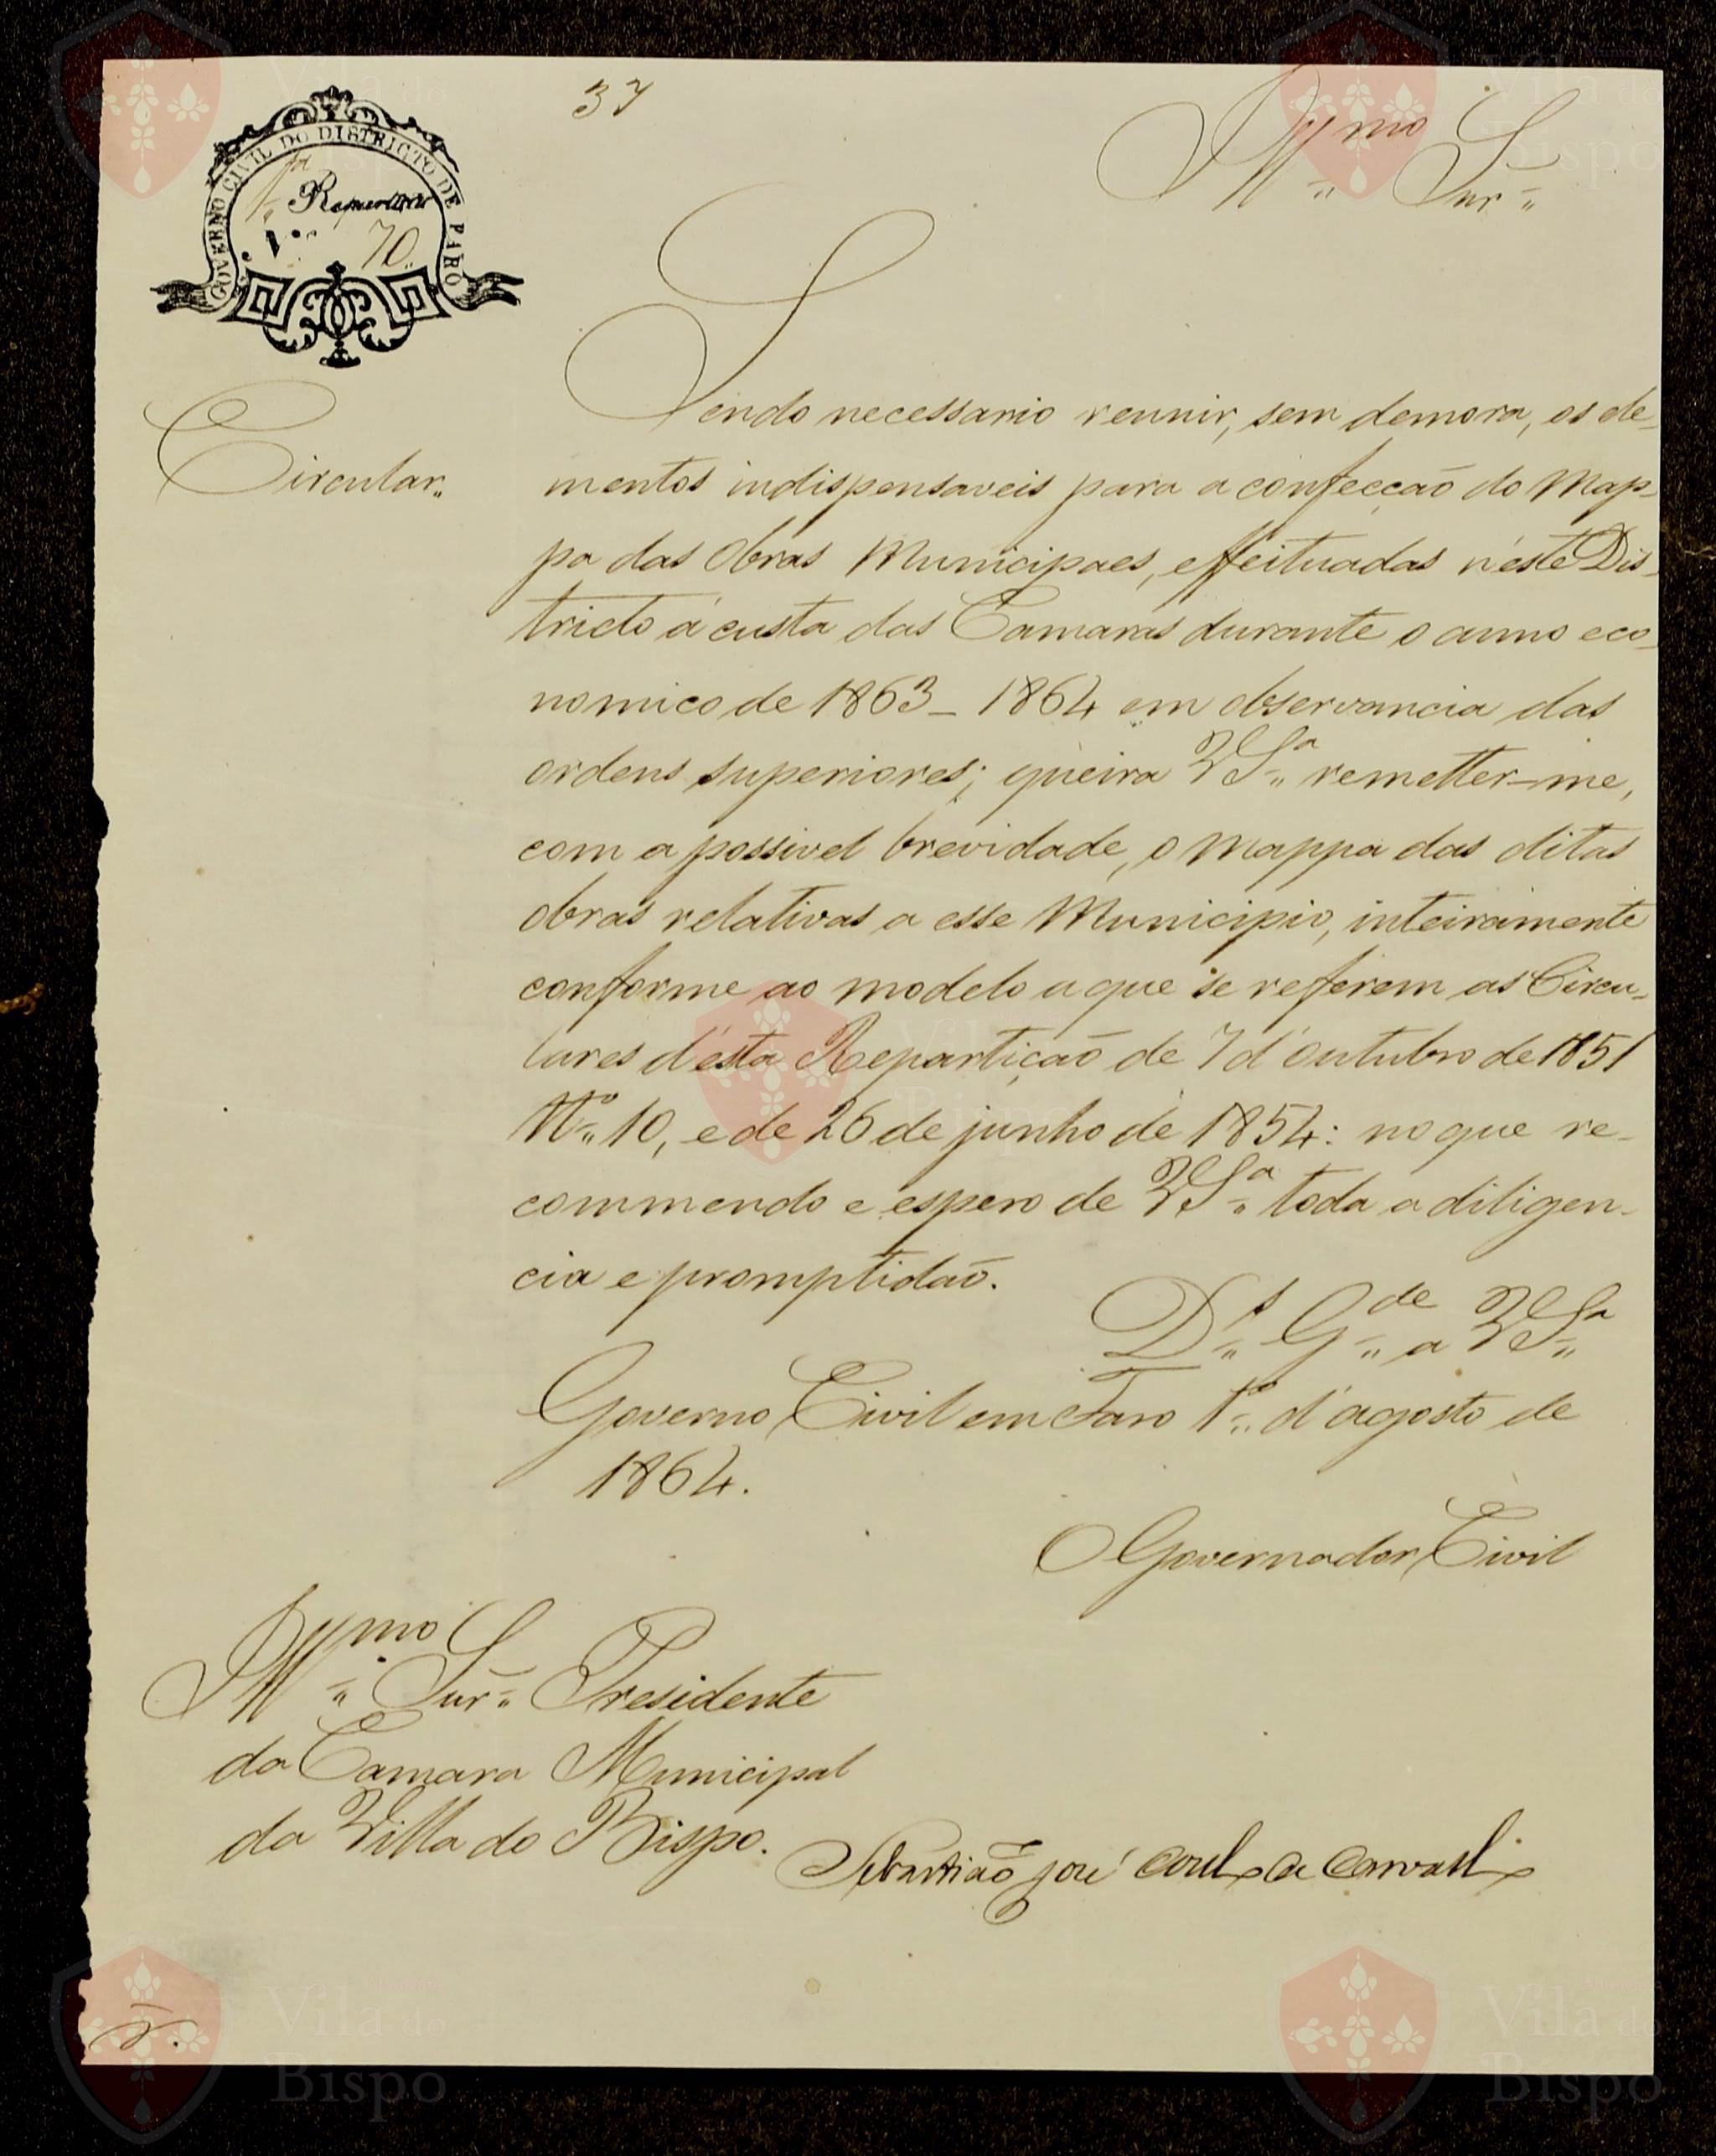 37
Illmo Snr
GOVERNO CIVIL DO DISTRICTO DE FARO
1ª Repartição
N.º 70
Circular
Sendo necessario reunir, sem demora, os ele-
mentos indispensaveis para a confecção do Map-
pa das Obras Municipaes, effeituadas n'este Dis-
tricto á custa das Camaras durante o anno eco-
nomico de 1863_1864 em observancia das
ordens superiores; queira V Sª remetter-me,
com a possivel brevidade, o Mappa das ditas
obras relativas a esse Municipio, inteiramente
conforme ao modelo a que se referem as Circu-
lares d'esta Repartição de 7 d'Outubro de 1851
Nº 10, e de 26 de junho de 1854: no que re-
commendo e espero de V Sª toda a diligen-
cia e promptidaõ.
Ds Gde a V Sª
Governo Civil em Faro 1º d'agosto de
1864.
O Governador Civil
Illmo Snr Presidente
da Camara Municipal
da Villa do Bispo.
Sebastião José de Carvalho
Vila do
Bispo